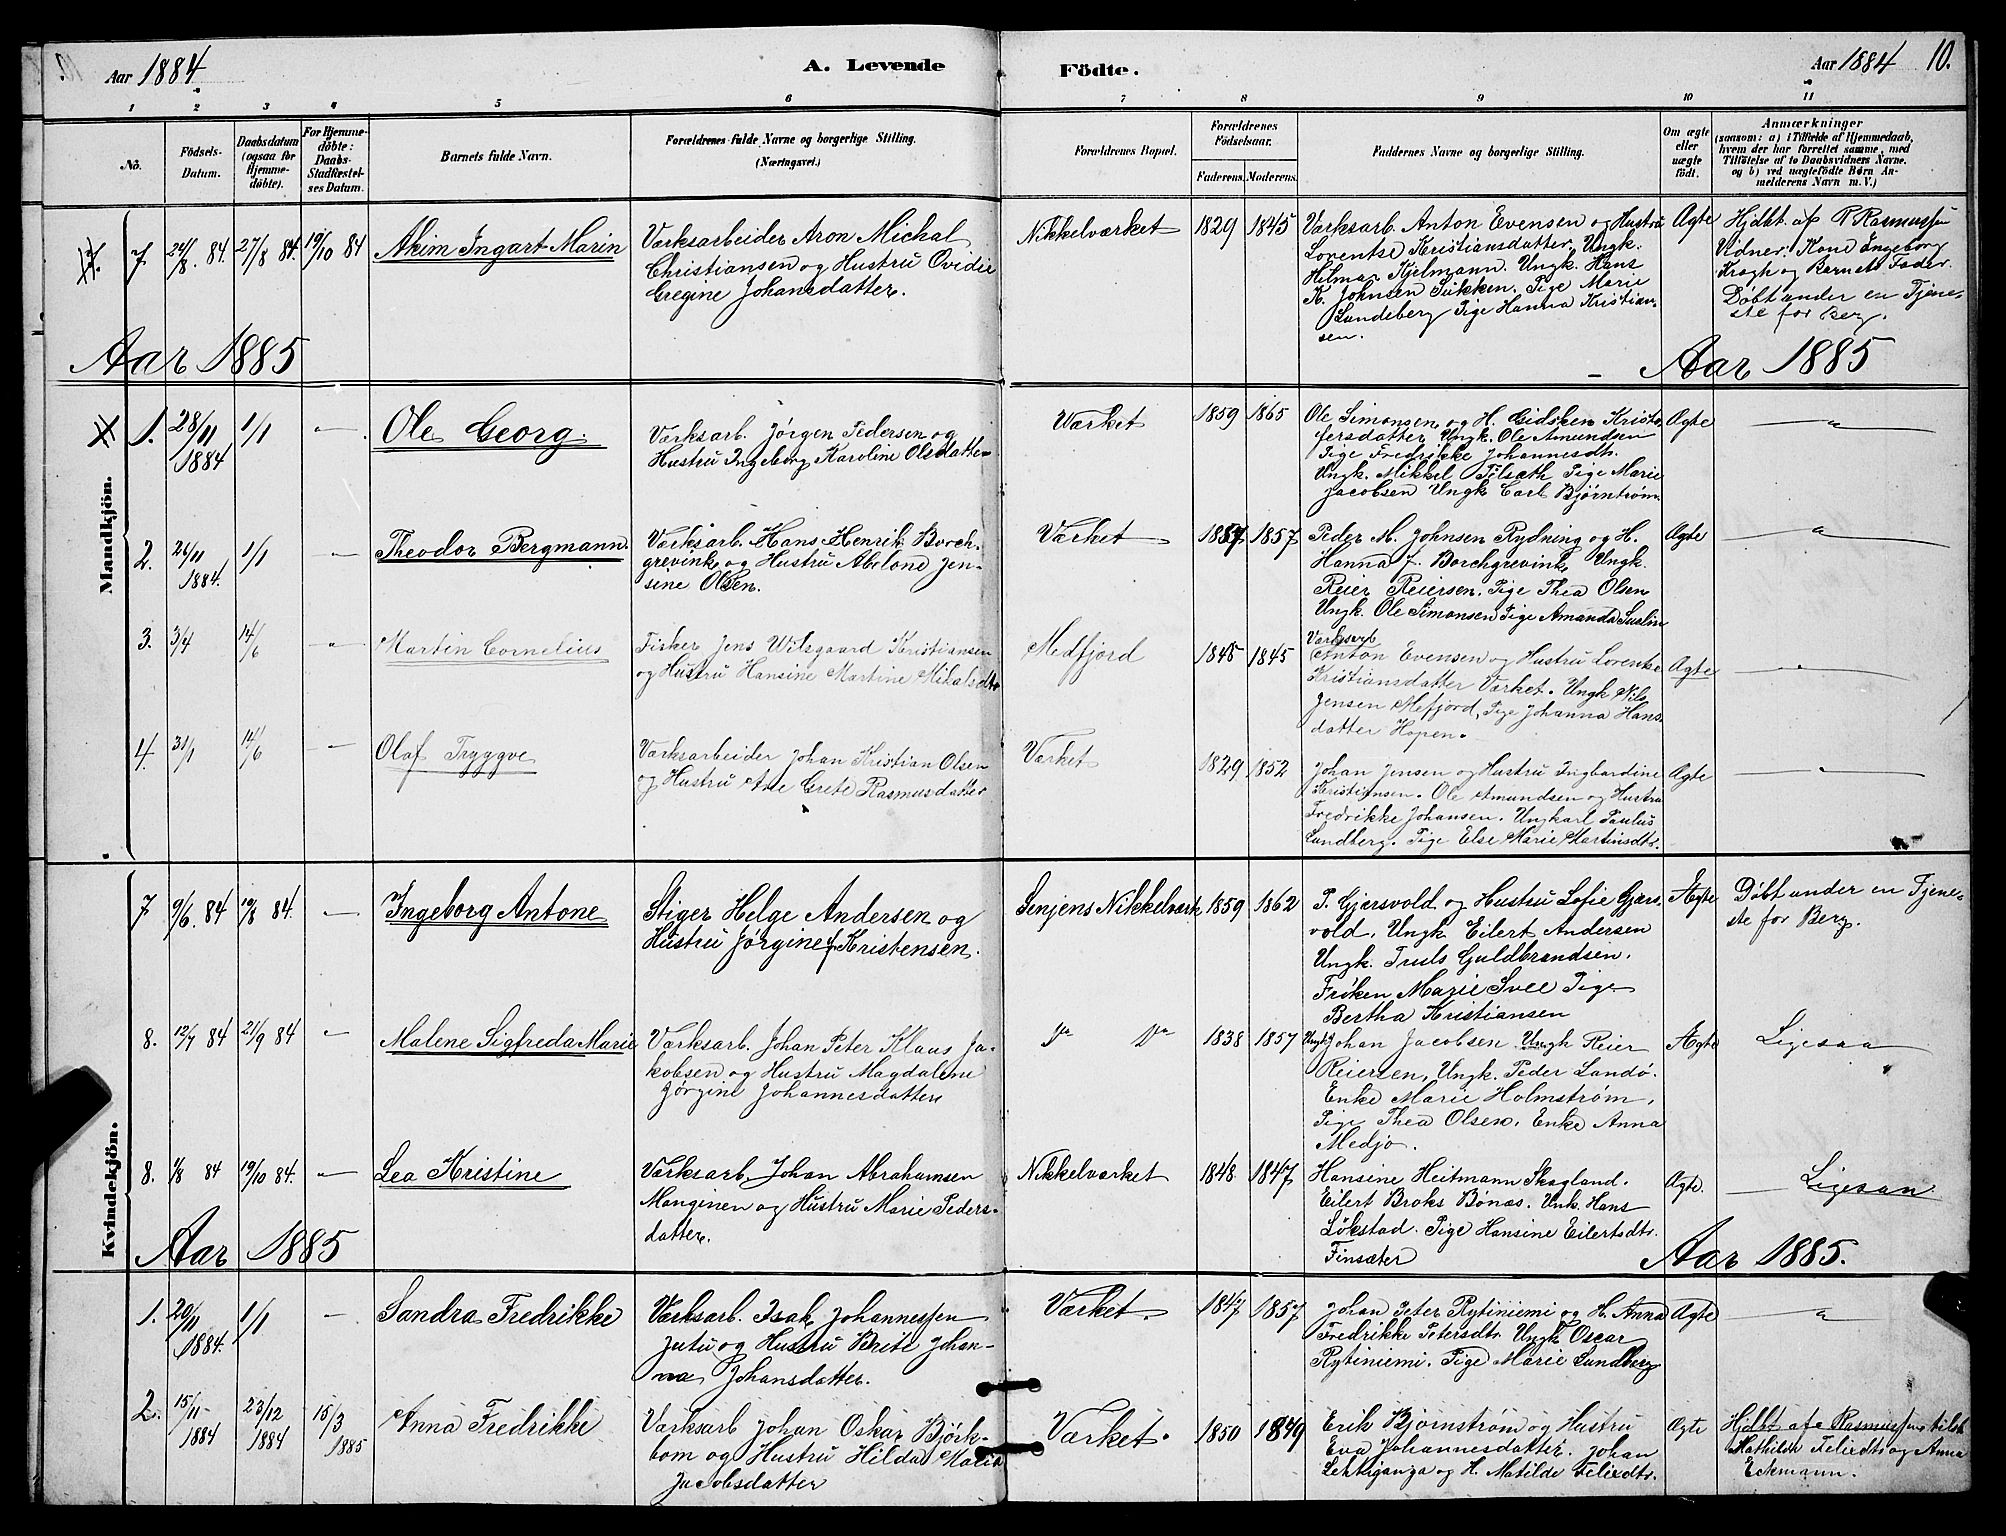 Aar 1884 A. Levende Födte. Aar 1884 10.
1 2 3 4 5 6 7 8 9 10 11
No. Födsels-Datum. Daabsdatum (ogsaa för Hjemmedöbte). For Hjemmedöbte: Daabs-Stadfæstelses Datum. Barnets fulde Navn. Forældrenes fulde Navne og borgerlige Stilling. (Næringsvei.) Forældrenes Bopæl. Forældrenes Födselsaar. Faderens. Moderens. Faddernes Navne og borgerlige Stilling. Om ægte eller uægte födt. Anmærkninger (saasom: a) i Tilfælde af Hjemmedaab, hvem der har forrettet samme, med Tilföielse af to Daabsvidners Navne. og b) ved uægtefödte Börn Anmelderens Navn m. V.)
Mandkjön.
7. 24/8. 84. 27/8 84. 19/10 84 Akim Ingart Marin
Værksarbeider Aron Michal
Christiansen og Hustru Ovidie
Gregine Johansdatter.
Nikkelværket 1829 1845
Værksarb. Anton Evensen og Hustru
Lorentse Kristiansdatter. Ungk.
Hilmar Kjelmann. Ungk. Hans
K. Johnsen Sukken. Pige Marie
Lundeberg Pige Hanna Kristian-
sen.
Ægte
Hjdbt. af P Rasmussen
Vidner: Kone Ingeborg
Krogh og Barnets Fader.
Døbt under en Tjene-
ste for Berg.
Aar 1885 Aar 1885
1. 28/11 1884 1/1 — Ole Georg.
Værksarb. Jørgen Pedersen og
Hustru Ingeborg Karoline Olsdatter
Værket 1859 1865
Ole Simonsen og H. Gidsken Kristo-
fersdatter Ungk. Ole Amundsen
Pige Fredrikke Johannesdtr.
Ungk. Mikkel Tilseth Pige Marie
Jacobsen Ungk Carl Bjørnstrøm.
Ægte — " —
2. 26/11 1884. 1/1 — Theodor Bergmann.
Værksarb. Hans Henrik Borch-
grevink og Hustru Abelone Jen-
sine Olsen.
Værket 1857 1857
Peder M. Johnsen Rydning og H.
Hanna J. Borchgrevink, Ungk.
Reier Reiersen. Pige Thea Olsen
Ungk. Ole Simonsen Pige Amanda Suslin
Ægte — " —
3. 3/4 14/6 " Martin Cornelius
Fisker Jens Wilsgaard Kristiansen
og Hustru Hansine Martine Mikalsdtr
Medfjord 1845 1845
Værksarb
Anton Evensen og Hustru Lorentse
Kristiansdatter Værket. Ungk Nils
Jensen Mefjord, Pige Johanna Hans
datter Hopen.
Ægte — " —
4. 31/1 14/6 — Olaf Tryggve
Værksarbeider Johan Kristian Olsen
og Hustru Ane Grete Rasmusdatter
Værket 1829 1852
Johan Jensen og Hustru Ingbardine
Kristiansen. Ole Amundsen og Hustru
Fredrikke Johansen. Ungkarl Paulus
Lundberg. Pige Else Marie Martinsdtr.
Ægte — " —
Kvindekjön.
7 9/6. 84 10/8 84. — Ingeborg Antone
Stiger Helge Andersen og
Hustru Jørgine f Kristensen.
Senjens Nikkelværk 1859 1862
P. Gjersvold og Hustru Lofie Gjers-
vold, Ungk. Eilert Andersen
Ungk. Truls Guldbrandsen.
Frøken Marie Svee Pige
Bertha Kristiansen
Ægte
Døbt under en Tjene-
ste for Berg.
8. 12/7 84 21/9 84 — Malene Sigfreda Marie
Værksarb. Johan Peter Klaus Ja-
kobsen og Hustru Magdalene
Jørgine Johannesdatter
Do Do 1838 1857
Ungk Johan Jacobsen Ungk Reier
Reiersen, Ungk. Peder Landø.
Enke Marie Holmstrøm,
Pige Thea Olsen, Enke Anna
Medjo.
Ægte Ligesaa
8. 1/8 84 19/10 84. — Lea Kristine
Værksarb. Johan Abrahamsen
Manginen og Hustru Marie Peders-
datter.
Nikkelværket 1848 1847
Hansine Heitmann Skogland.
Eilert Broks Bónas. Unk. Hans
Løkstad. Pige Hansine Eilertsdtr.
Finsæter
Ægte. Ligesaa
Aar 1885 Aar 1885.
1. 20/11 1884. 1/1 — Sandra Fredrikke
Værksarb. Isak Johannessen
Jutu og Hustru Brite Johan-
na Johansdatter.
Værket. 1847 1857
Johan Peter Rytiniemi og H. Anna
Fredrikke Petersdtr Ungk Oscar
Rytiniemi. Pige Marie Lundberg
Ægte — " —
2. 15/11 1884 23/12 1884 15/3 1885 Anna Fredrikke
Værksarb Johan Oskar Björk-
bom og Hustru Hilda Maria
Jacobsdatter
Værket. 1850 1849
Erik Bjørnstrøm og Hustru
Eva Johannesdatter. Johan
Lehtiganga og H. Matilde Felixdtr.
Ægte
Hjdbt af Rasmussen
Mathilde Felixdtr og Anna
Eckmann.